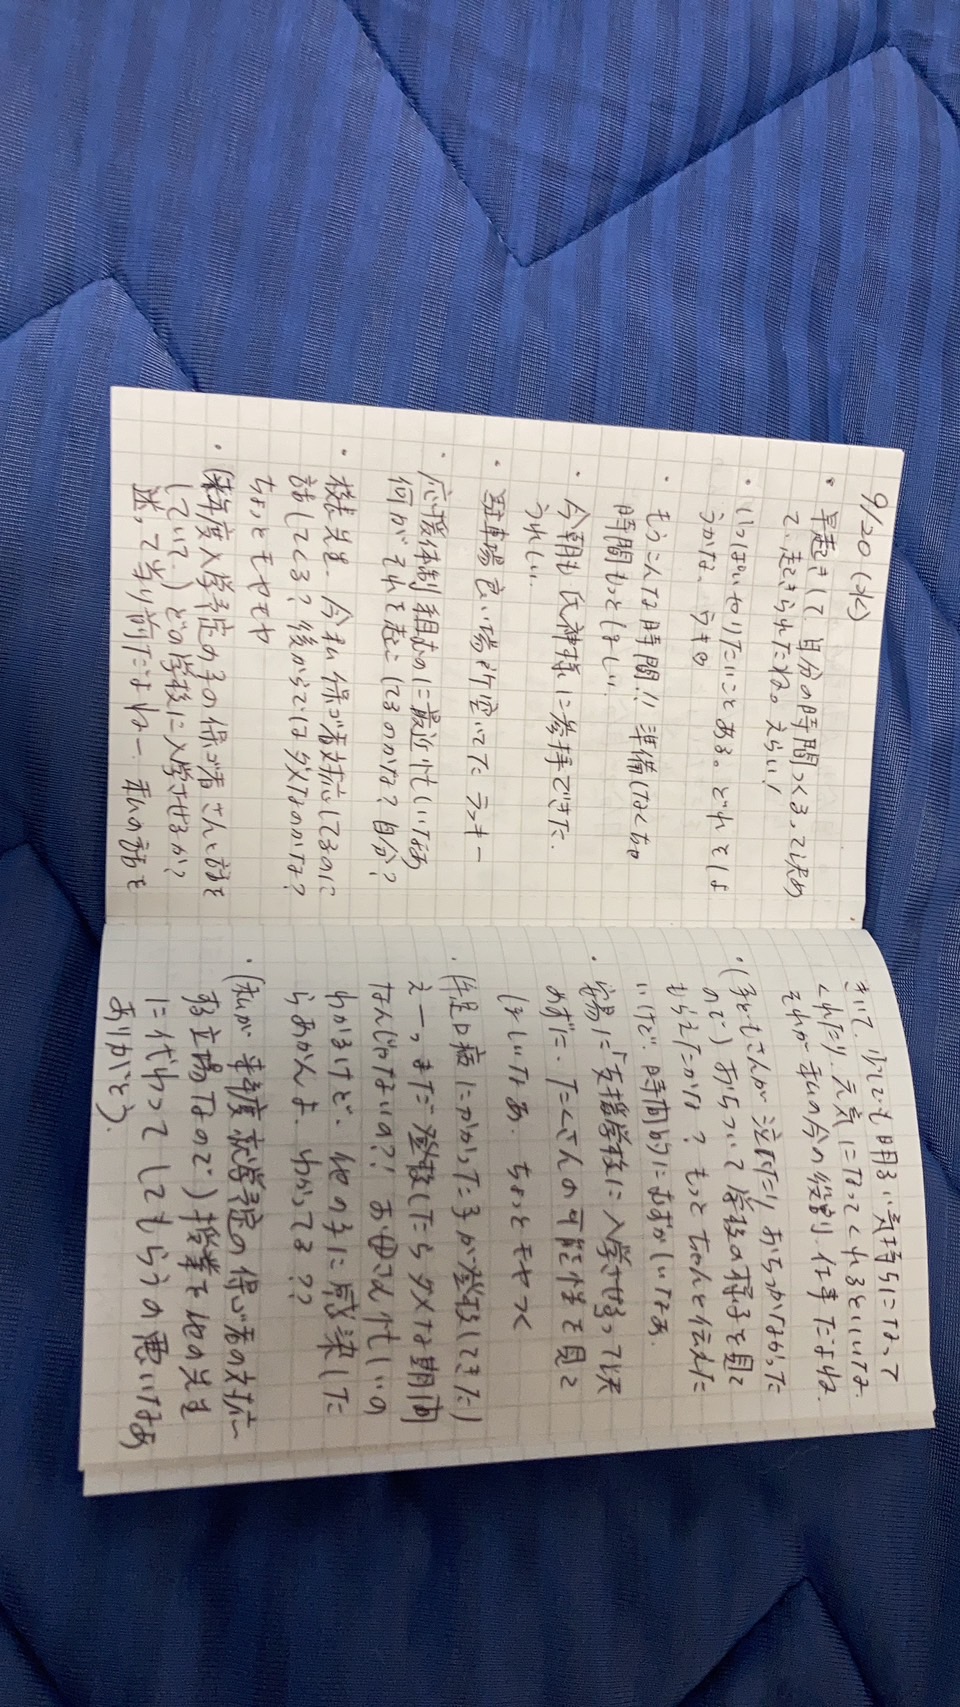 9/20(水)
・早起きして、自分の時間つくるって決め
て、起きられたね。えらい!
・いっぱいやりたいことある。どれをしよ
うかな。ウキウキ
・もうこんな時間!!準備しなくちゃ
時間もっとほしい。
・今朝も氏神様に参拝できた。
うれしい。
・駐車場良い場所空いてた ラッキー
・応援体制組むのに最近忙しいなあ
何がそれを起こしてるのかな?自分?
・校長先生、今私保ゴ者対応してるのに
話してくる?後からではダメなのかな?
ちょっとモヤモヤ
・(来年度入学予定の子の保ゴ者さんと話を
していて)どの学校に入学させるか?
迷って当り前だよねー。私の話を
きいて、少しでも明るい気持ちになって
くれたり、元気になってくれるといいな
それが私の今の役割、仕事だよね
さんが泣いたり、おちつかなかった
ので)おちついて学校の様子を見て
もらえたかな?もっとちゃんと伝えた
いけど、時間的にはむずかしいなあ
・容易に「支援学校に入学させる」って決
めずに、たくさんの可能性を見て
ほしいなあ ちょっとモヤっ
・(手足口病にかかった子が登校してきた)
えーっまだ登校したらダメな期間
なんじゃないの?!お母さん忙しいの
わかるけど、他の子に感染した
らあかんよ、わかってる??
・(私が来年度就学予定の保ゴ者の対応
する立場なので)授業を他の先生
に代わってしてもらうの悪いなあ
ありがとう。